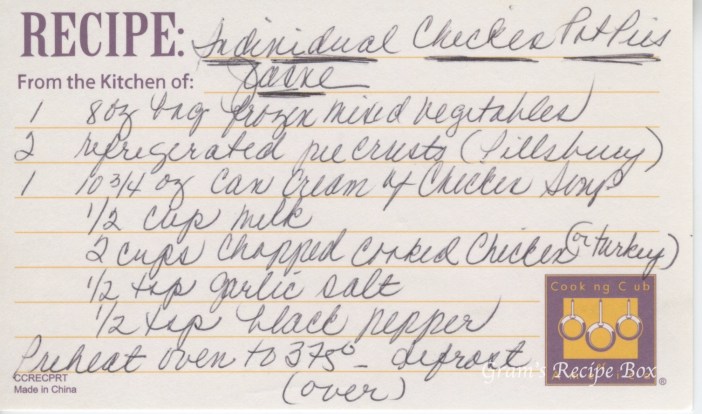 RECIPE: Individual Chicken Pot Pies
From the Kitchen of: Joanne
1 8oz bag frozen mixed vegetables
2 refrigerated pie crusts (Pillsbury)
1 10 3/4 oz can Cream of Chicken Soup
1/2 cup milk
2 cups chopped cooked chicken (or turkey)
1/2 tsp garlic salt
1/2 tsp black pepper
Preheat oven to 375° - defrost
(over)
CCRECPRT
Made in China
Cooking Club
Gram's Recipe Box
®